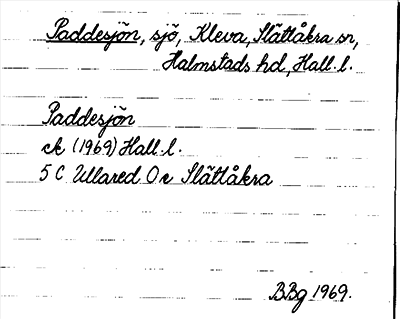 Paddesjön, sjö, Kleva, Slättåkra sn,
Halmstads hd, Hall. l.
Paddesjön
ek (1969) Hall. l.
5 C Ullared O e Slättåkra
BBg 1969.